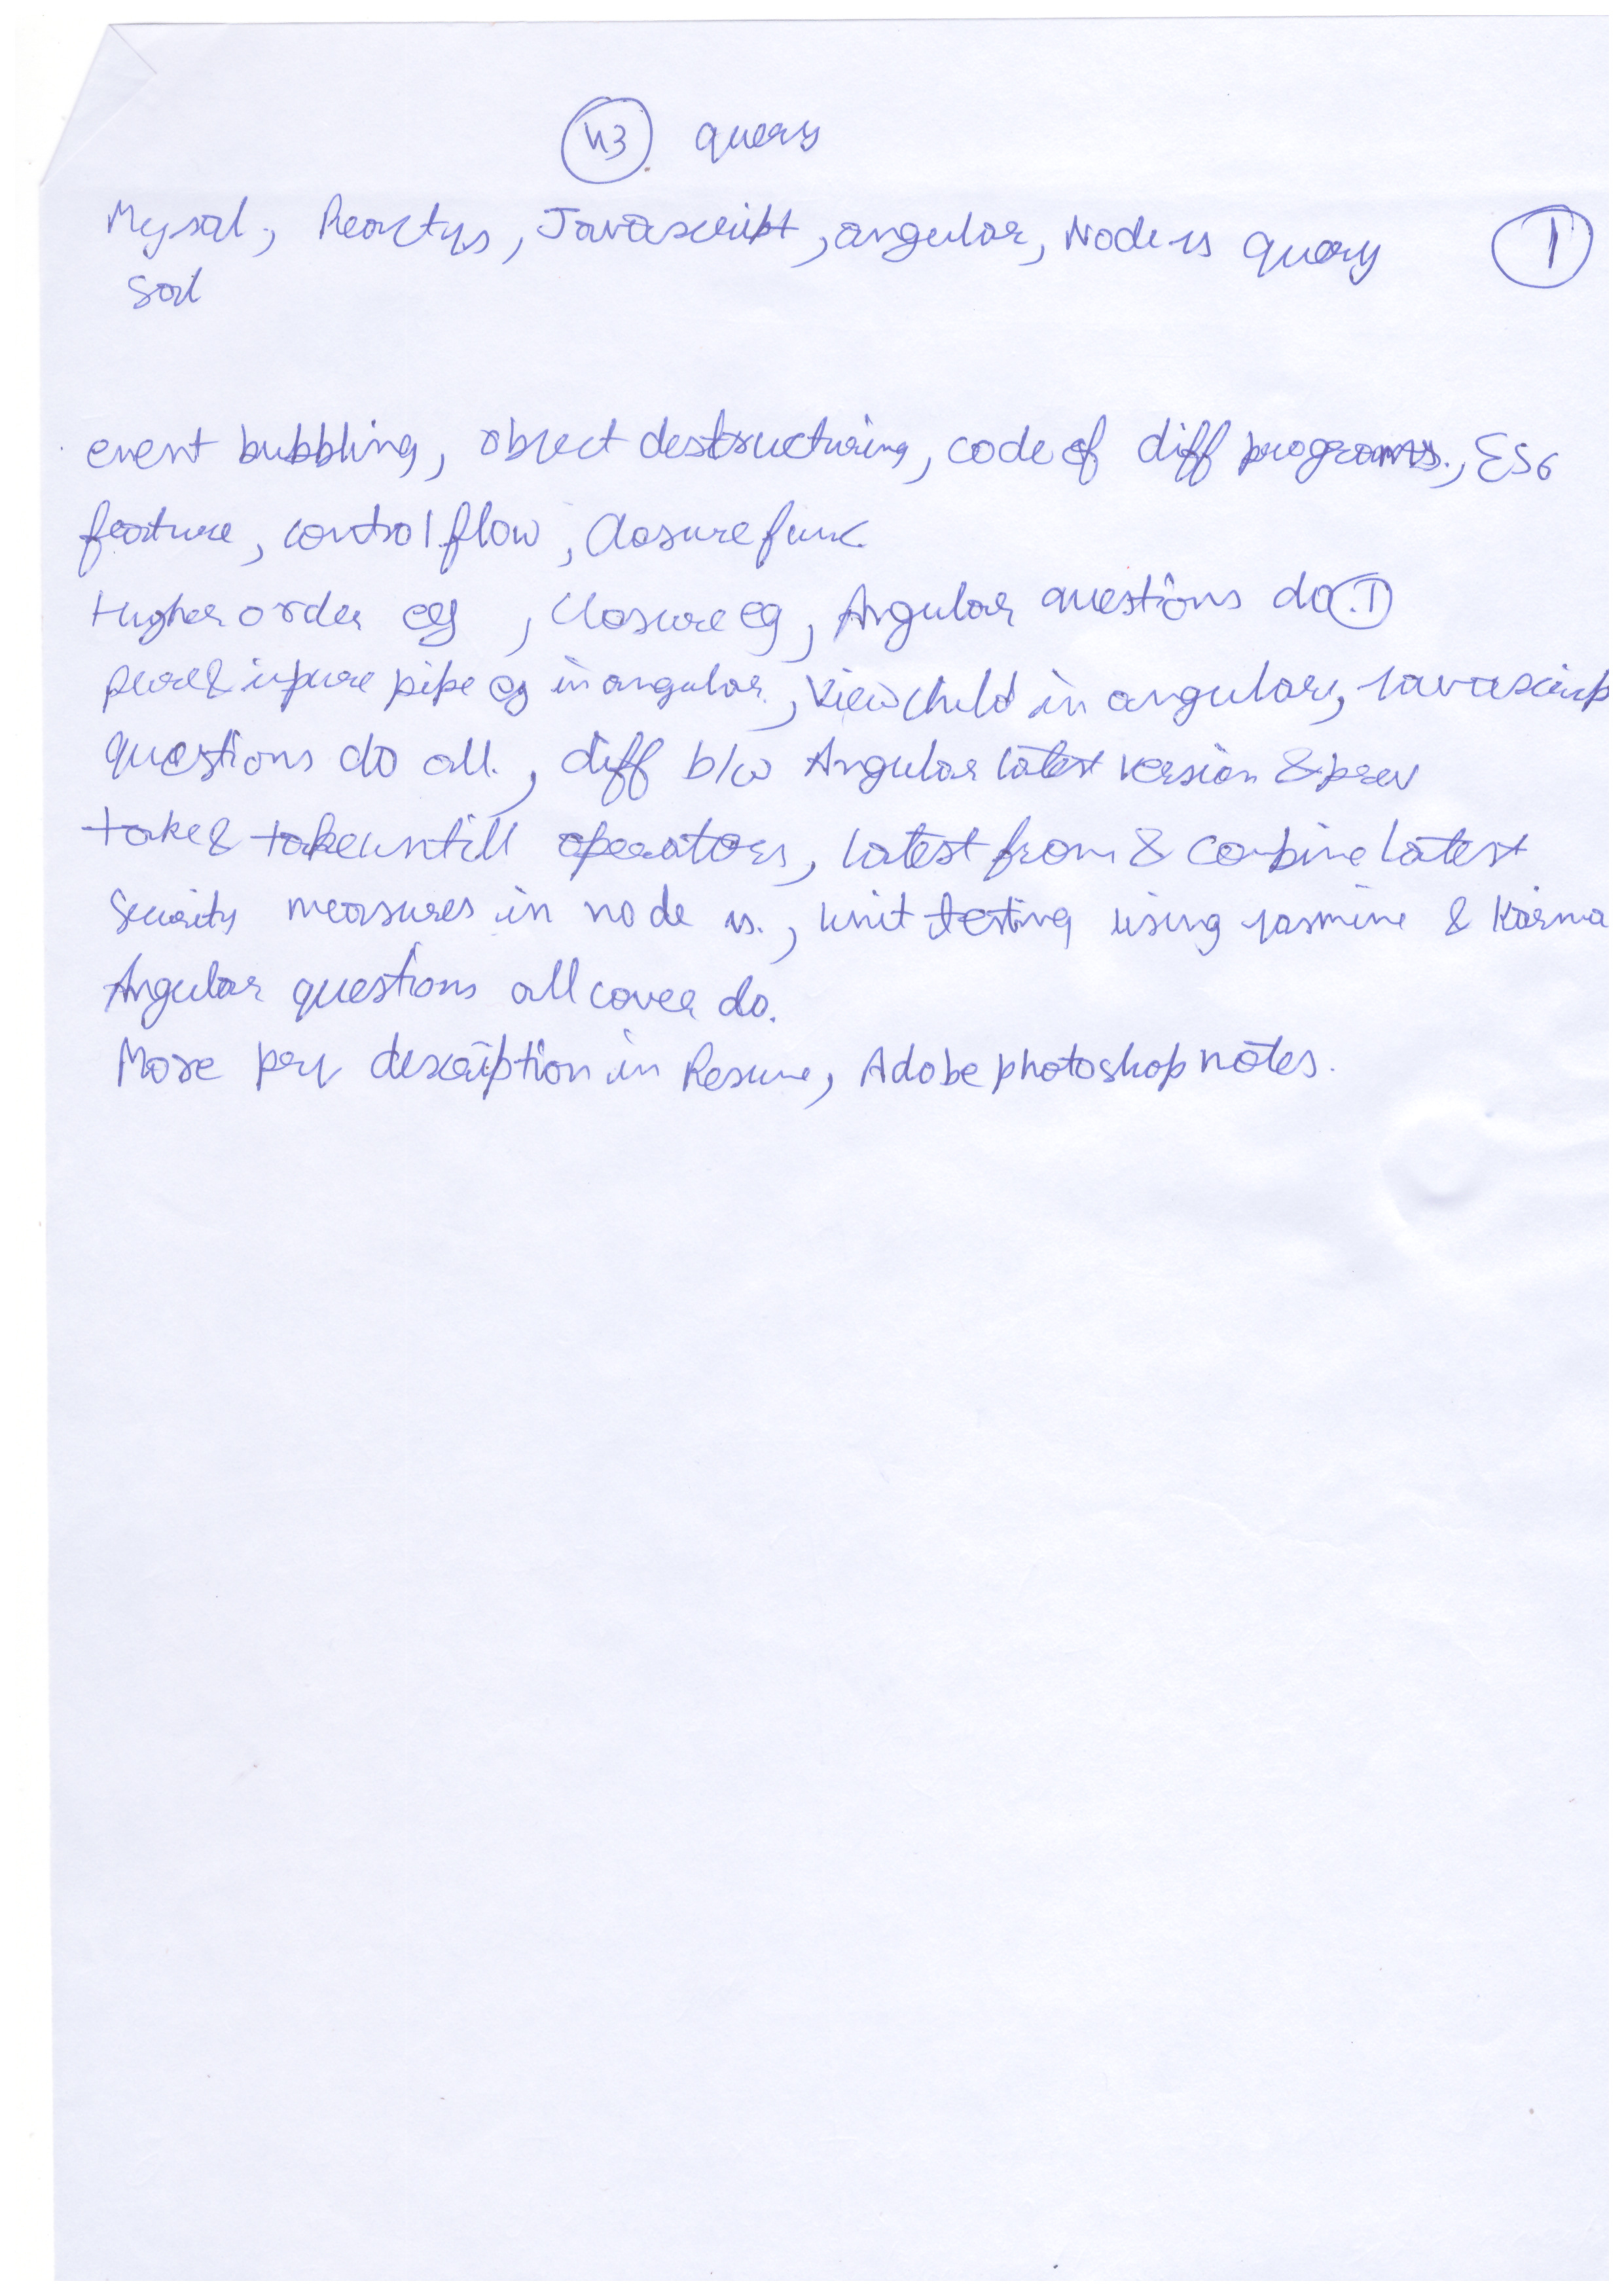 43 query
Mysql, Reactjs, Javascript, angular, Node js query 1
Sql
event bubbling, object destructuring, code of diff programs., ES6
feature, control flow, Closure func
Higher order eg, Closure eg, Angular questions do. 1
pure & inpure pipe eg in angular, Viewchild in angular, Javascrip
questions do all., diff b/w Angular latest version & prev
take & takeuntill operators, latest from & combine latest
Security measures in node js., Unit testing using jasmine & Karma
Angular questions all cover do.
More description in Resume, Adobe photoshop notes.